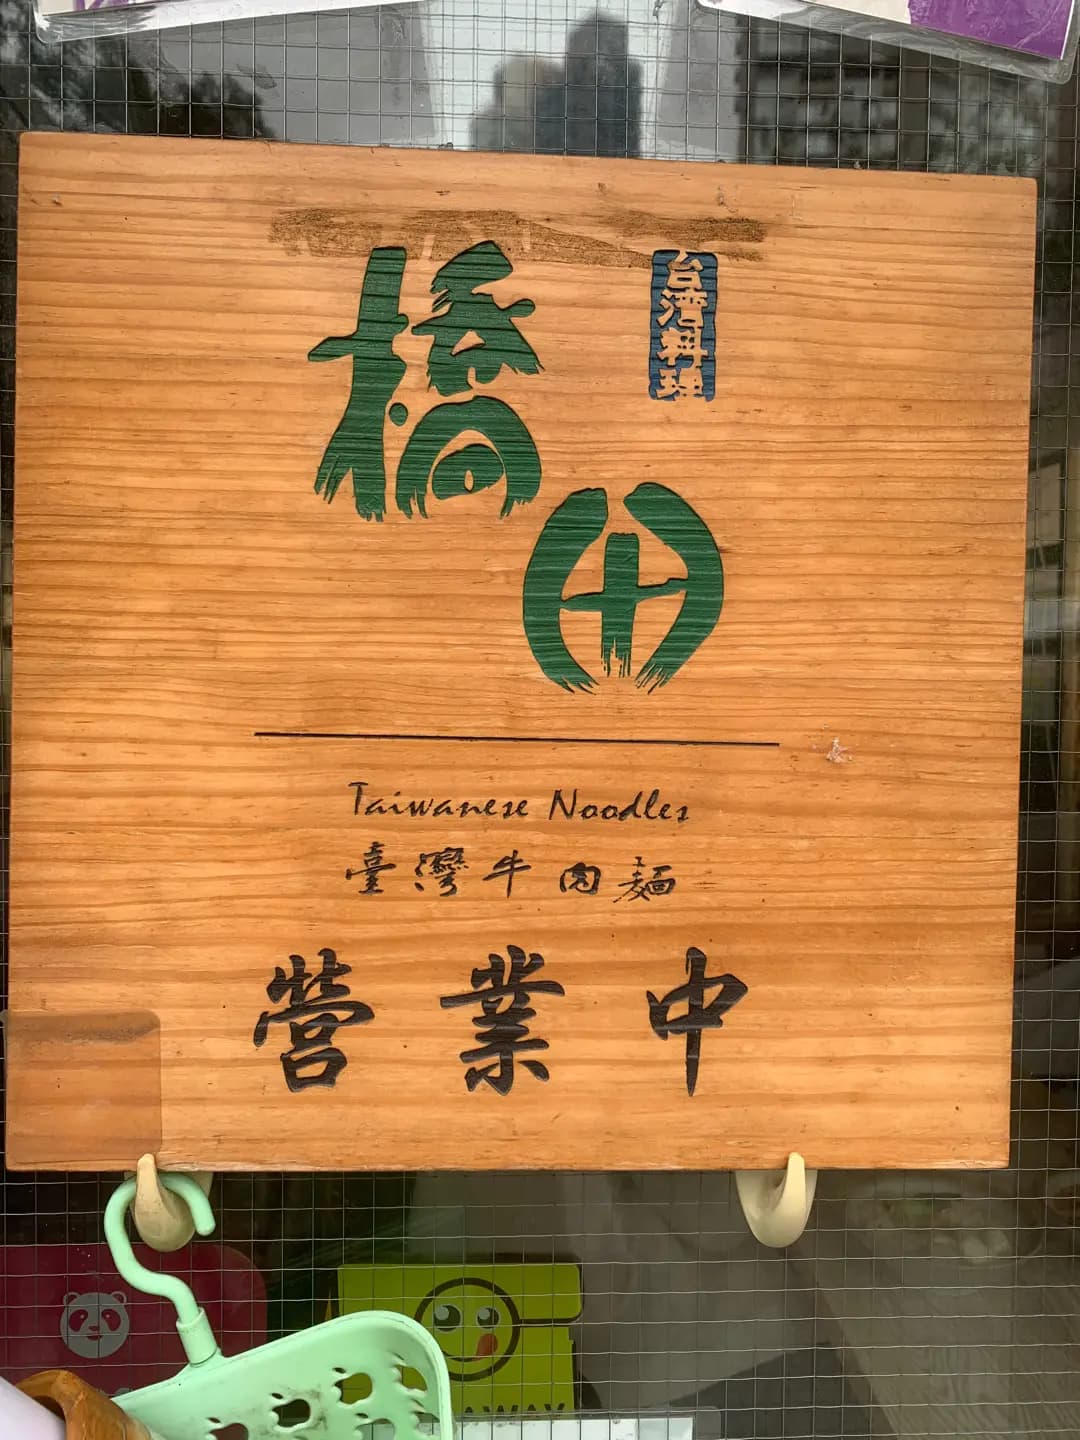 橋田
台湾料理
Taiwanese Noodles
臺灣牛肉麵
營業中
AWAY